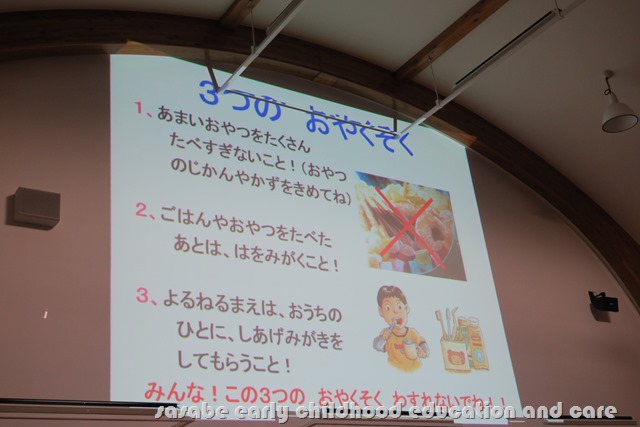 3つの おやくそく
1、あまいおやつをたくさん
たべすぎないこと！（おやつ
のじかんやかずをきめてね）
2、ごはんやおやつをたべた
あとは、はをみがくこと！
3、よるねるまえは、おうちの
ひとに、しあげみがきを
してもらうこと！
みんな！この3つの おやくそく わすれないでね！！
sasabe early childhood education and care